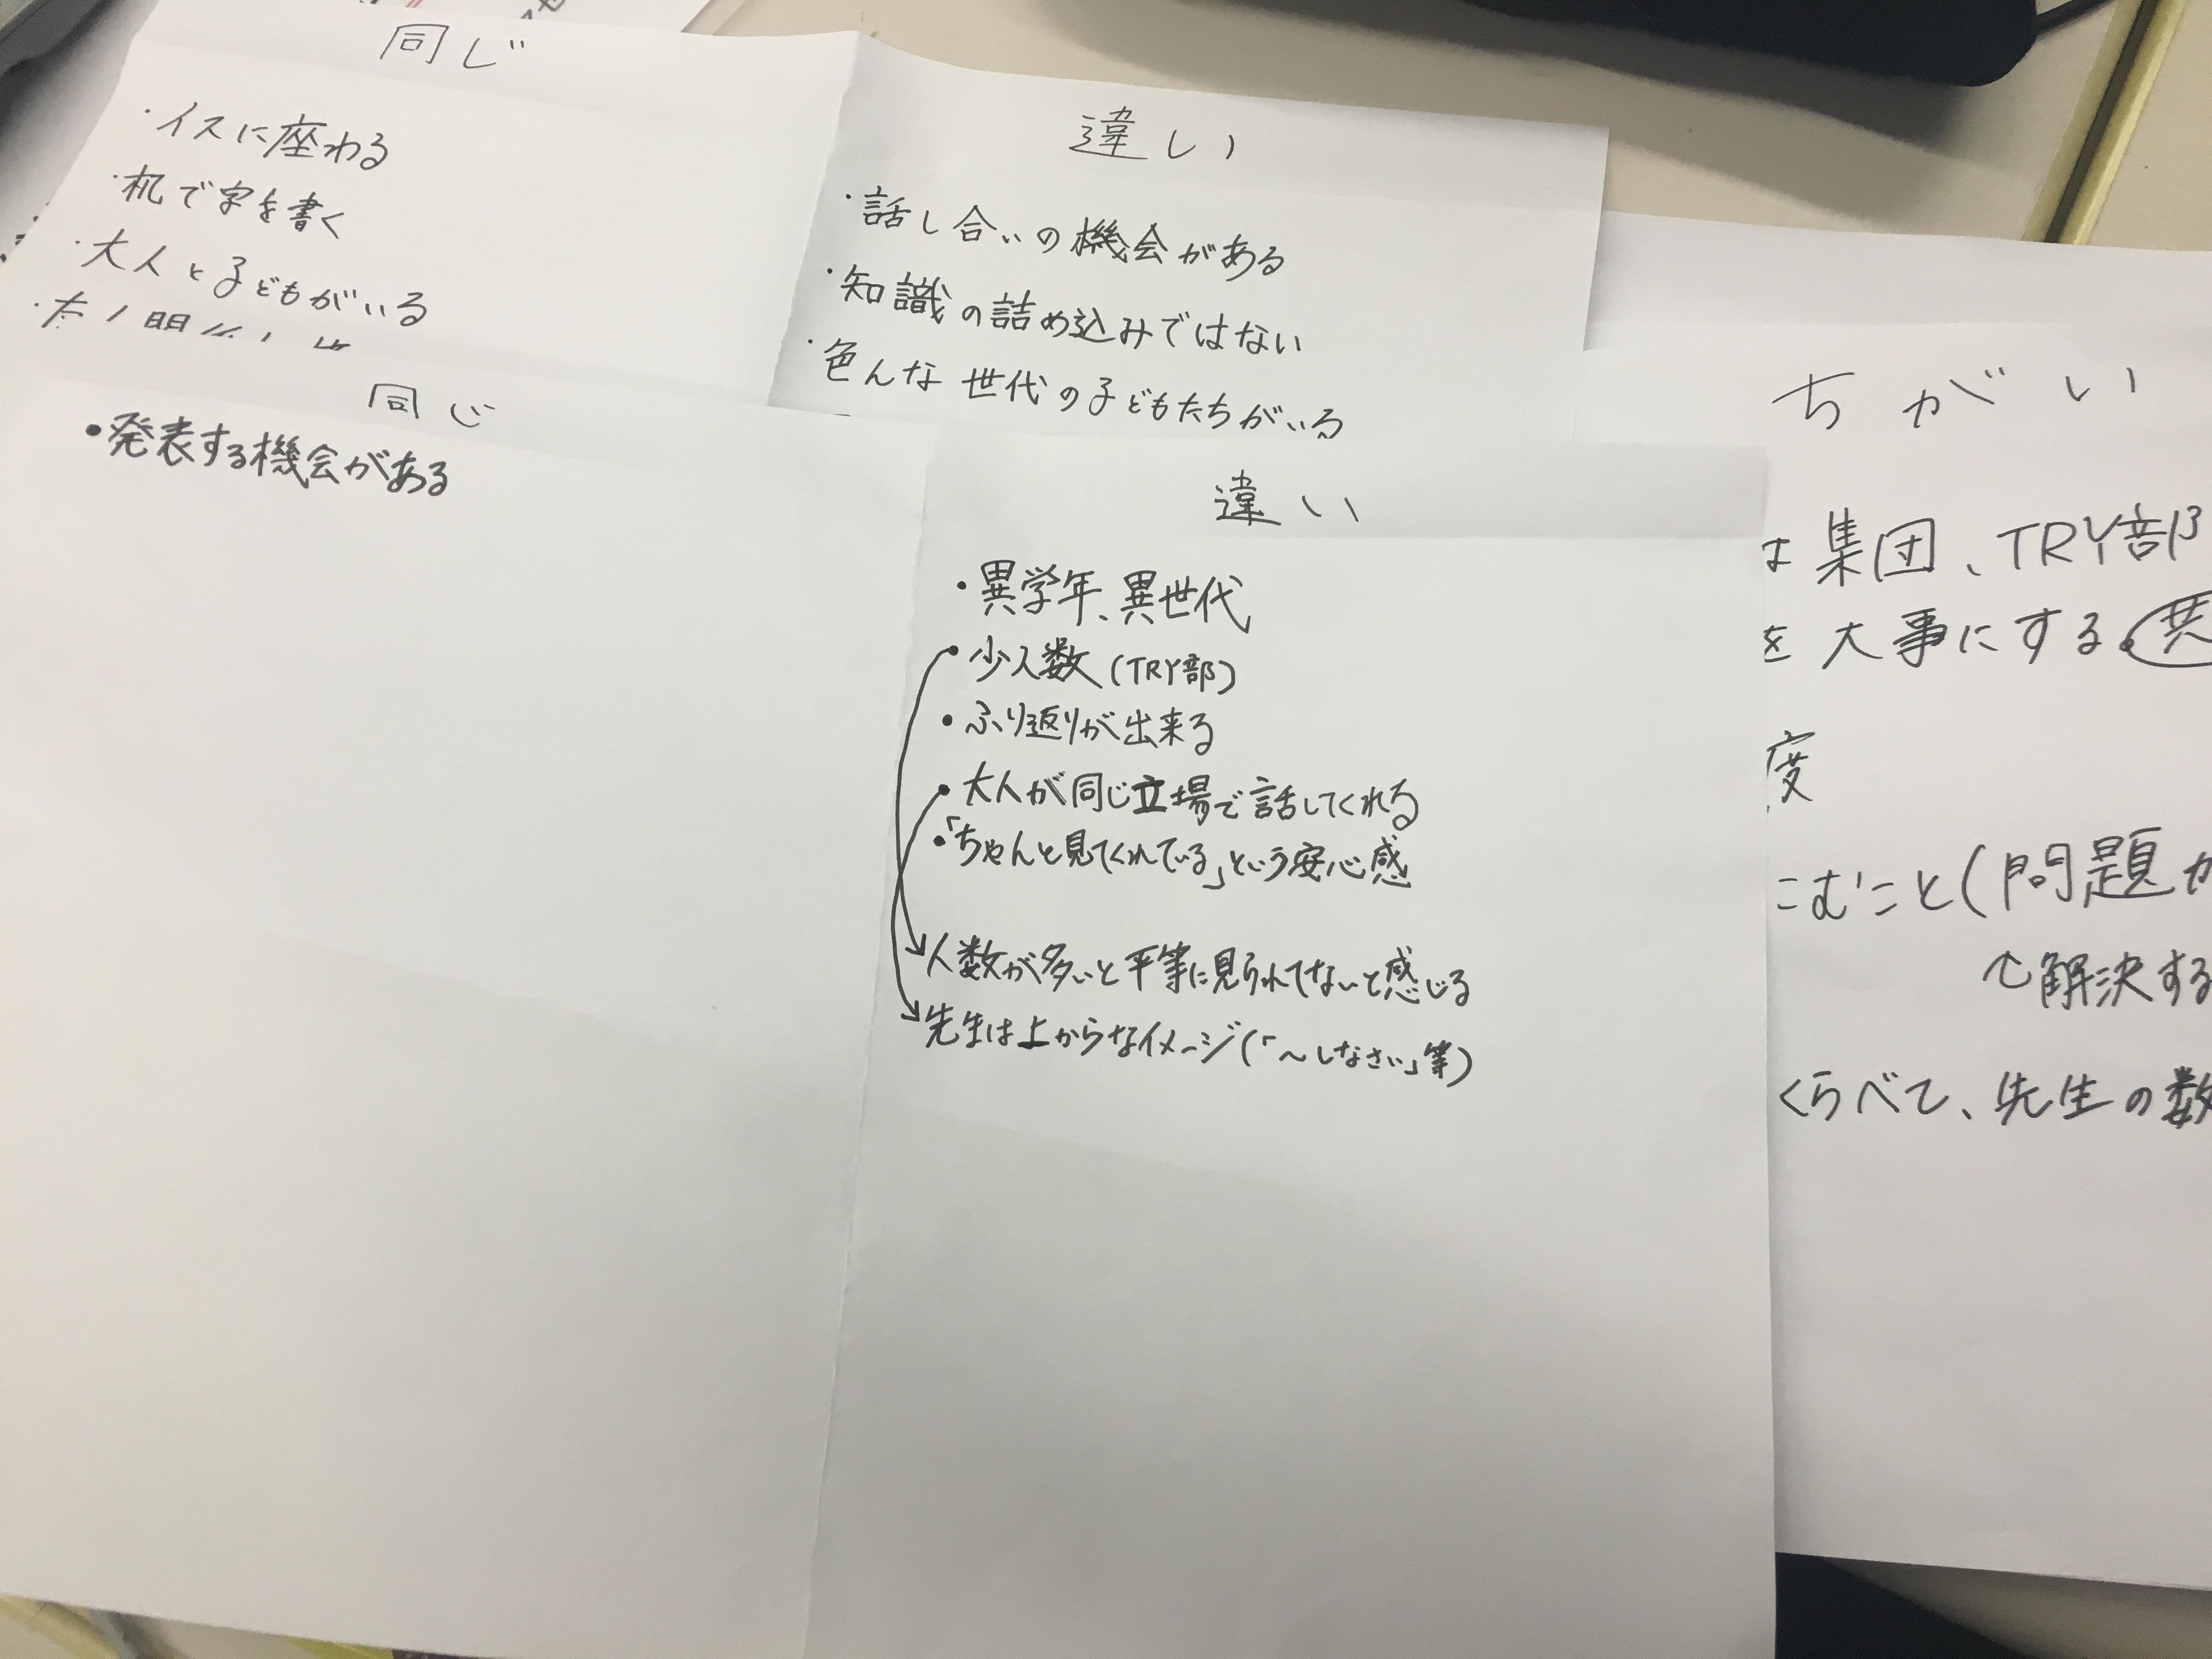 同じ
・イスに座わる
・机で字を書く
・大人と子どもがいる
違い
・話し合いの機会がある
・知識の詰め込みではない
・色んな世代の子どもたちがいる
同じ
・発表する機会がある
違い
・異学年、異世代
・少人数(TRY部)
・ふり返りが出来る
・大人が同じ立場で話してくれる
・「ちゃんと見てくれている」という安心感
人数が多いと平等に見られてないと感じる
先生は上からなイメージ(「〜しなさい」等)
ちがい
は集団、TRY部
を大事にする。共
度
こむこと(問題か
解決する
くらべて、先生の数